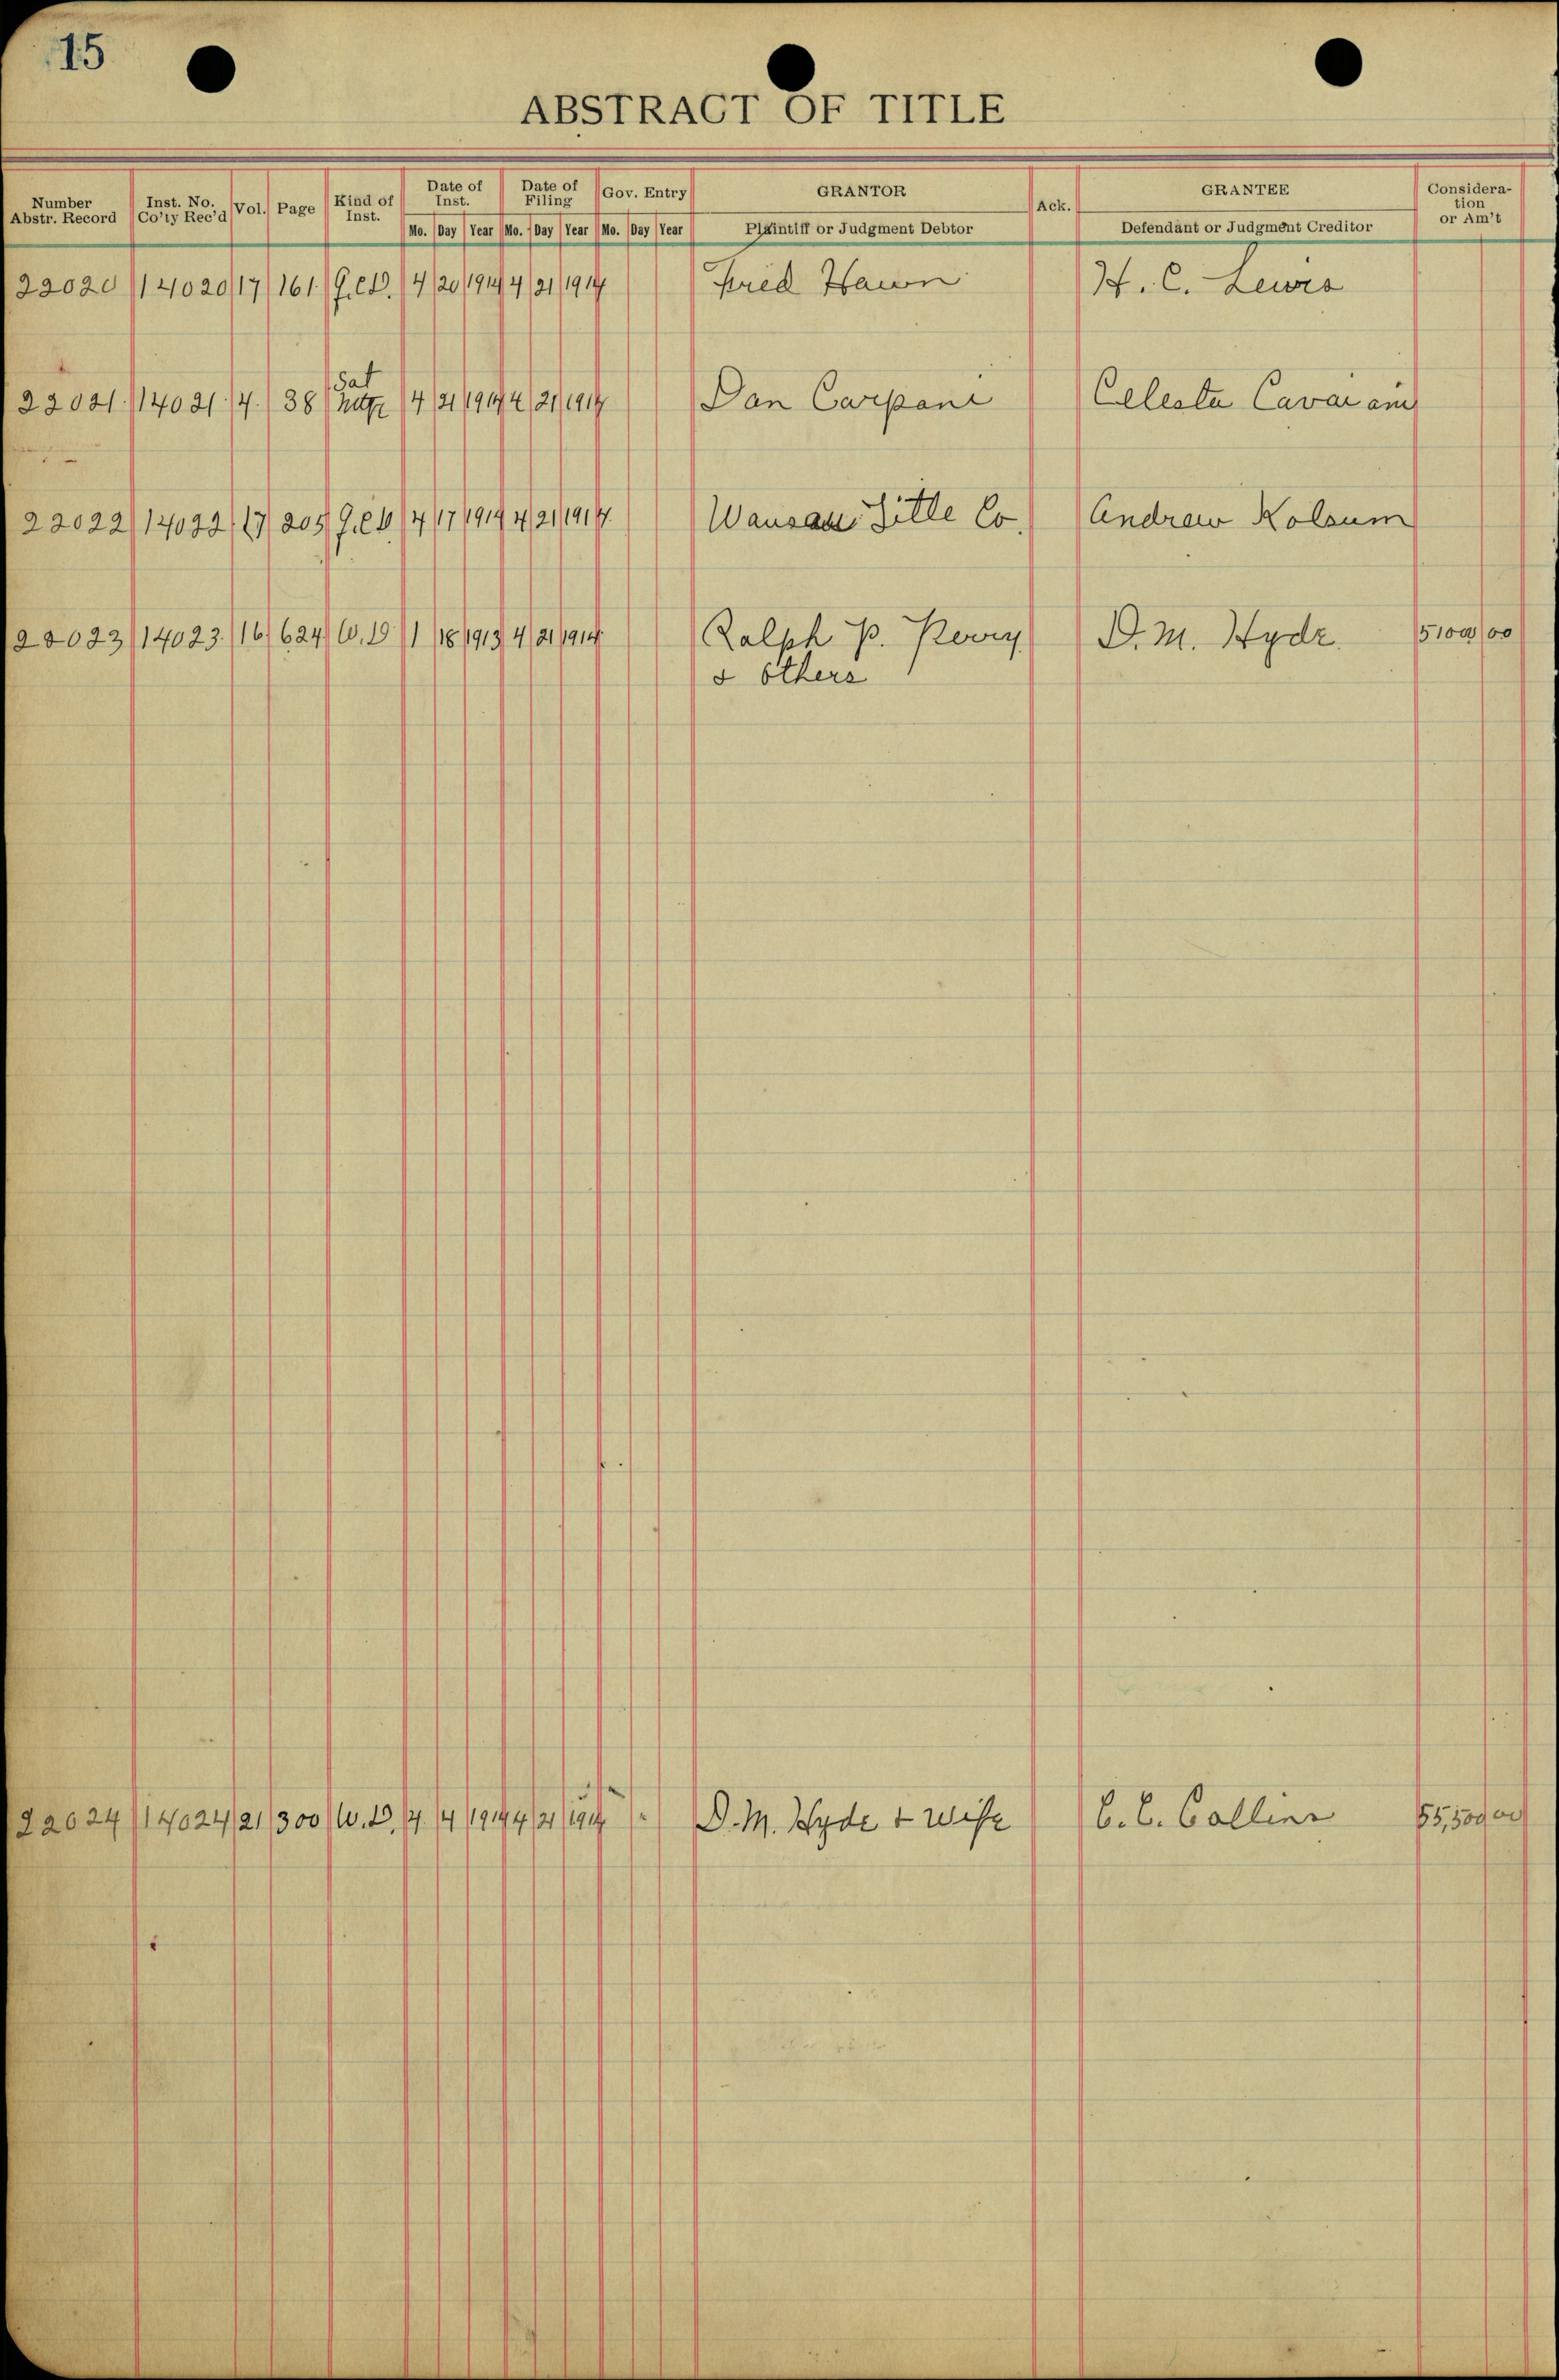 15
ABSTRACT OF TITLE
Number Abstr. Record Inst. No. Co'ty Rec'd Vol. Page Kind of Inst. Date of Inst. Date of Filing Gov. Entry GRANTOR Ack. GRANTEE Consideration or Am't
Mo. Day Year Mo. Day Year Mo. Day Year Plaintiff or Judgment Debtor Defendant or Judgment Creditor
22020 14020 17 161 Q.C.D. 4 20 1914 4 21 1914 Fred Hawn H. C. Lewis
Sat
22021 14021 4 38 mtge 4 21 1914 4 21 1914 Dan Carpani Celesta Cavaiani
22022 14022 17 205 Q.C.D 4 17 1914 4 21 1914 Wausau Title Co. Andrew Kolsum
22023 14023 16 624 W.D 1 18 1913 4 21 1914 Ralph P. Perry D. M. Hyde 5100 00
& others
22024 14024 21 300 W.D. 4 4 1914 4 21 1914 D. M. Hyde & wife C. C. Collins 55,500 00